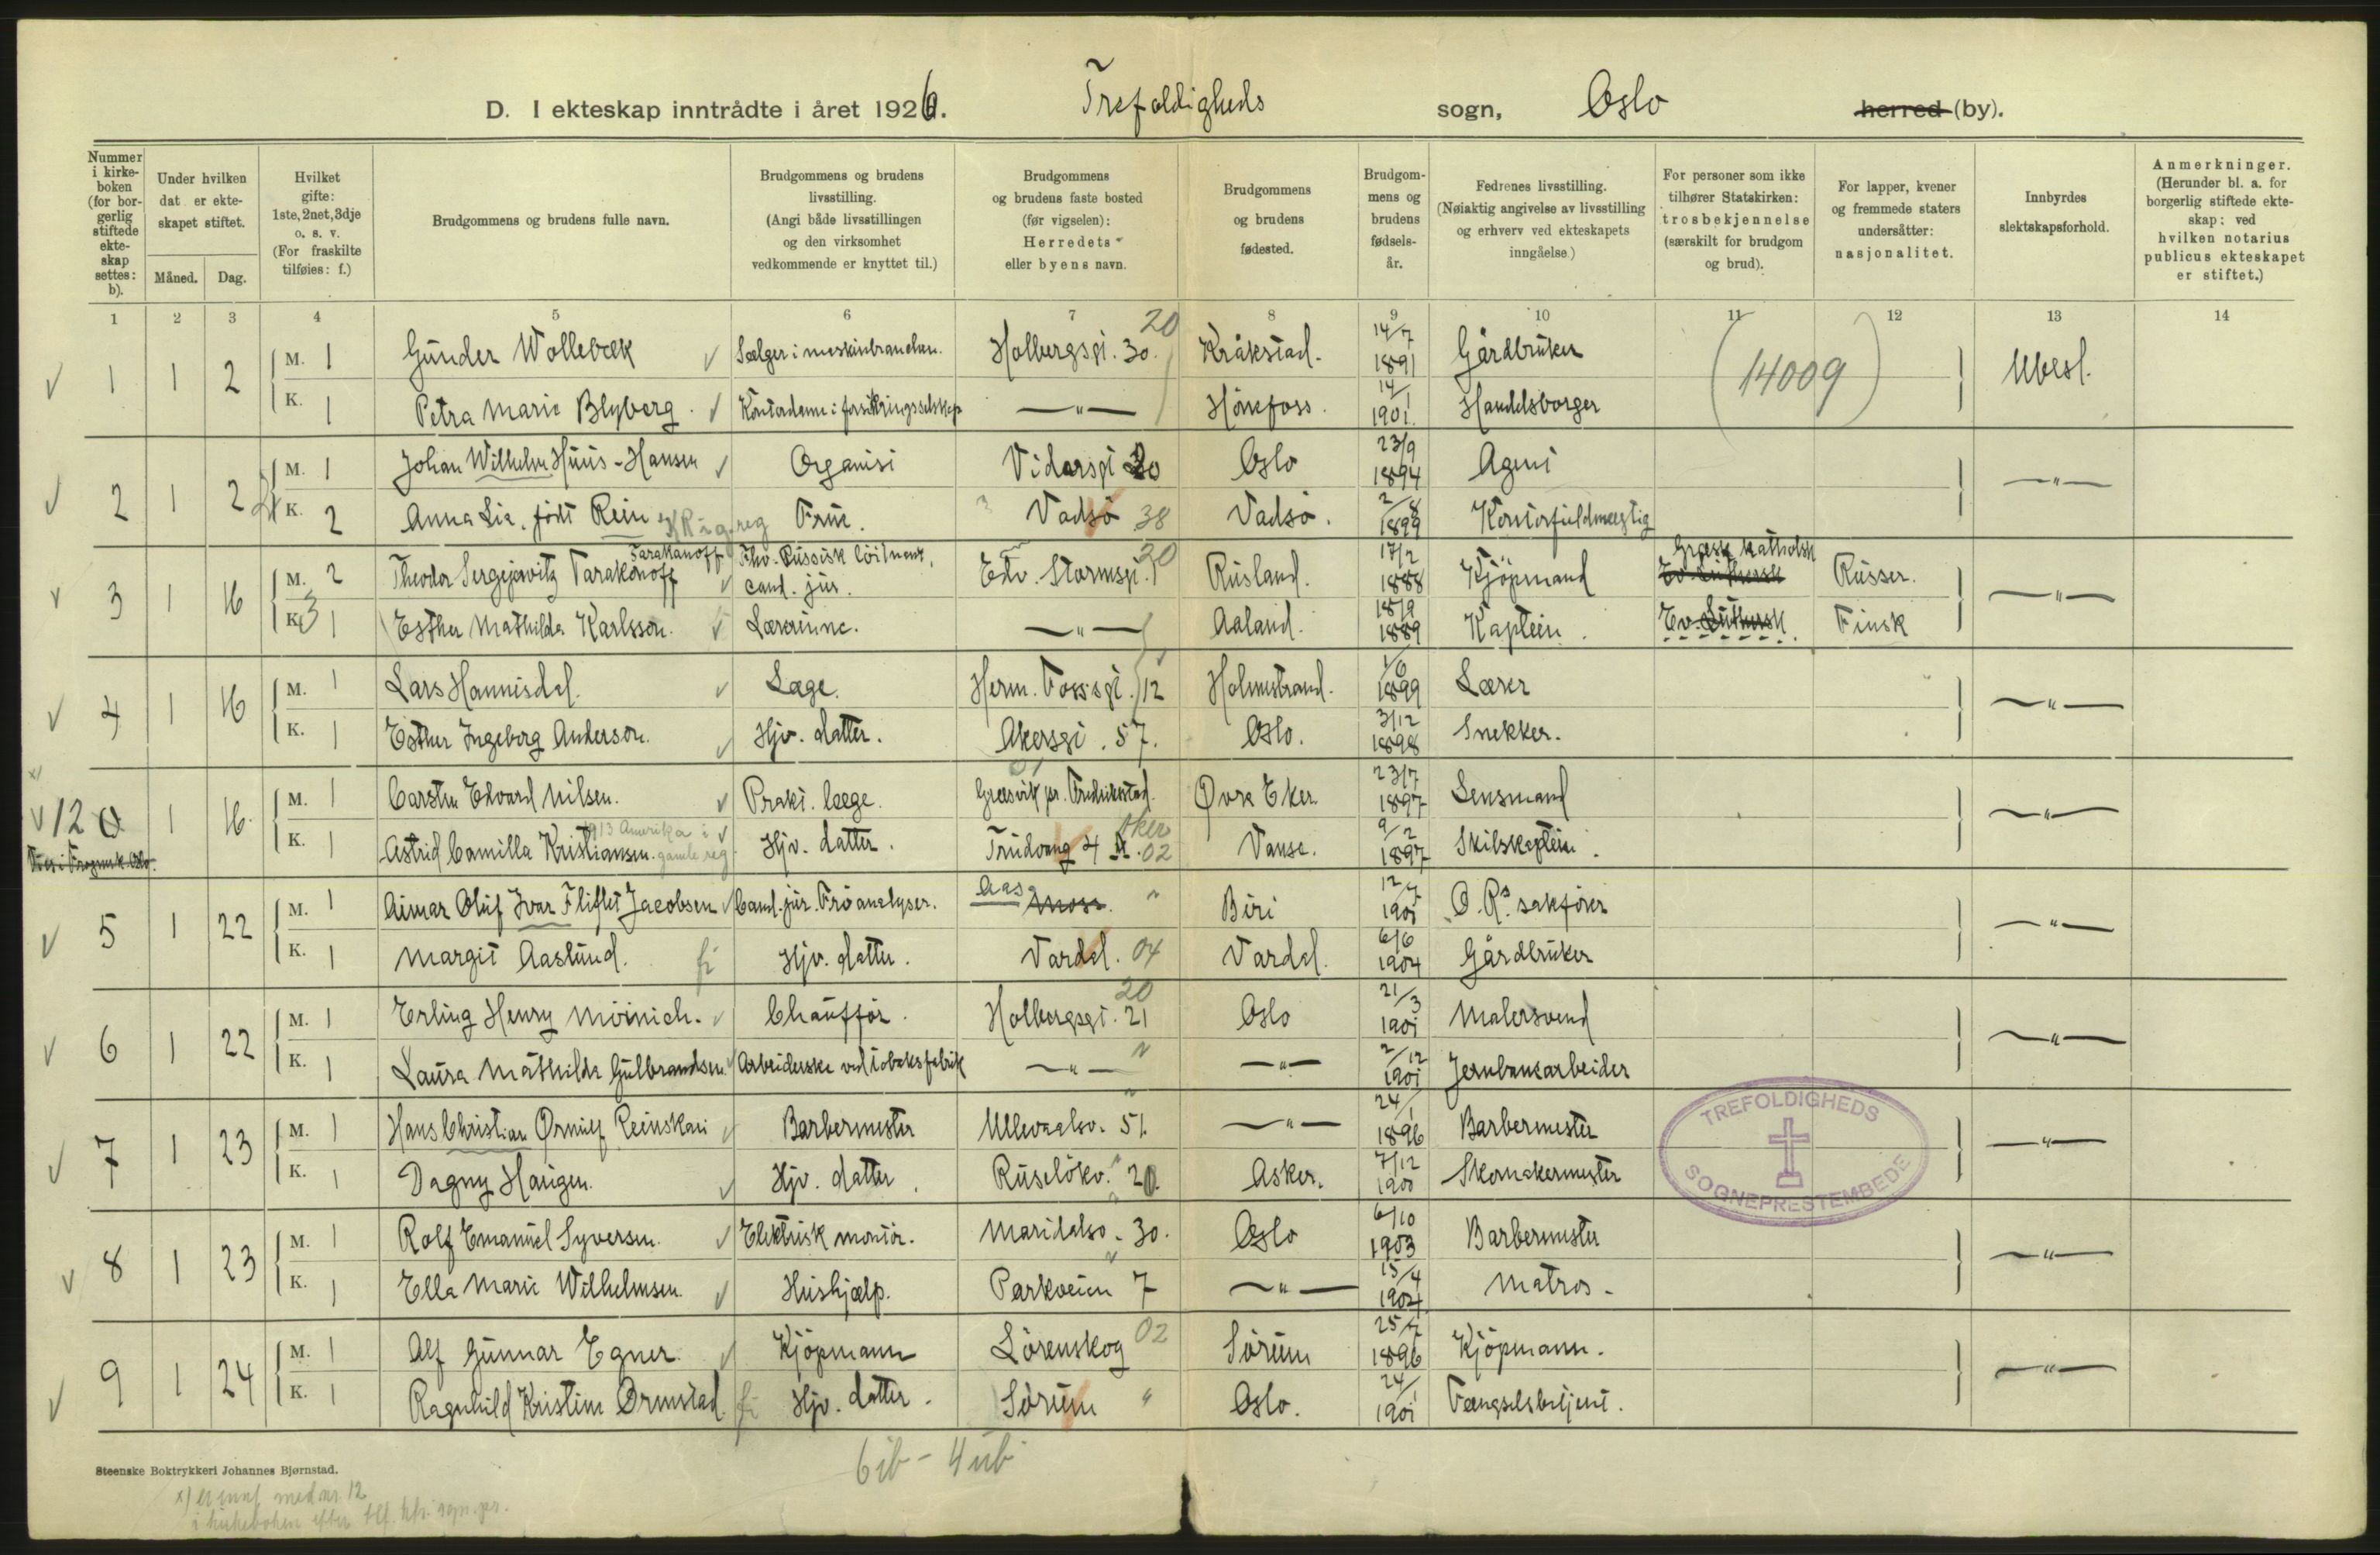 D. I ekteskap inntrådte i året 1926. Trefoldigheds sogn, Oslo herred (by).
Nummer i kirkeboken (for borgerlig stiftede ekteskap settes: b).
Under hvilken dat. er ekteskapet stiftet.
Måned. Dag.
Hvilket gifte: 1ste, 2net, 3dje o. s. v. (For fraskilte tilføies: f.)
Brudgommens og brudens fulle navn.
Brudgommens og brudens livsstilling. (Angi både livsstillingen og den virksomhet vedkommende er knyttet til.)
Brudgommens og brudens faste bosted (før vigselen): Herredets eller byens navn.
Brudgommens og brudens fødested.
Brudgommens og brudens fødselsår.
Fedrenes livsstilling. (Nøiaktig angivelse av livsstilling og erhverv ved ekteskapets inngåelse.)
For personer som ikke tilhører Statskirken: trosbekjennelse (særskilt for brudgom og brud).
For lapper, kvener og fremmede staters undersåtter: nasjonalitet.
Innbyrdes slektskapsforhold.
Anmerkninger. (Herunder bl. a. for borgerlig stiftede ekteskap: ved hvilken notarius publicus ekteskapet er stiftet.)
1 2 3 4 5 6 7 8 9 10 11 12 13 14
1 1 2 M. 1 Gunder Wollebæk Sælger i maskinbranchen. Holbergsgt. 30. 20 Kråkstad. 14/7 1891 Gårdbruker (14009) Ubesl.
K. 1 Petra Marie Blyberg. Kontordame i forsikringsselskap —"— Hönefoss. 14/1 1901. Handelsborger
2 1 2 M. 1 Johan Wilhelm Huus-Hansen Organist Vidarsgt 20 Oslo 23/9 1894 Agent —"—
K. 2 Anna Lia, födt Rein Frue. Vadsö 38 Vadsö. 2/8 1899 Kontorfuldmægtig
3 1 16 M. 2 Theodor Sergejewitz Tarakanoff Tarakanoff Fhv. Russisk löitnant, cand. jur. Edv. Stormsgt. 1 20 Rusland. 17/2 1888 Kjöpmand Ev. Luthersk Græsk katholsk Russer. —"—
K. 1 3 Esther Mathilda Karlsson. Lærerinne. —"— Aaland. 18/9 1889 Kaptein. Ev. Luthersk Finsk
4 1 16 M. 1 Lars Hannisdal. Læge. Herm. Fossgt. 12 Holmestrand. 1/6 1899 Lærer —"—
K. 1 Esther Ingeborg Anderson. Hjv. datter. Akersgt. 57. Oslo. 3/12 1898 Snekker.
x) 12 1 16 M. 1 Carsten Edvard Nilsen. Prakt. læge. Græsvik pr. Fredrikstad. 01 Øvre Eker 23/7 1897 Lensmand —"—
K. 1 Astrid Camilla Kristiansen. 1913 Amerika i gamle reg. Hjv. datter. Trudvang 4 Aker 02 Vanse. 9/2 1897 Skibskaptein.
5 1 22 M. 1 Aimar Oluf Ivar Fliflet Jacobsen Cand. jur. Fröanalyser. Aas Moss. " Biri 12/7 1901 O.R.s sakförer —"—
K. 1 Margit Aaslund. fi Hjv. datter. Vardal. 04 Vardal. 6/6 1904 Gårdbruker
6 1 22 M. 1 Erling Henry Möinich. Chaufför. Holbergsgt. 21 20 Oslo 21/3 1901 Malersvend —"—
K. 1 Laura Mathilde Gulbrandsen. Arbeiderske ved tobaksfabrik —"— —"— 2/12 1901 Jernbanearbeider
7 1 23 M. 1 Hans Christian Ørnulf Reinskau Barbermester Ullevaalsv. 51. —"— 24/1 1896 Barbermester —"—
K. 1 Dagny Haugen. Hjv. datter. Ruselökv. 20. Asker. 7/12 1900 Skomakermester
TREFOLDIGHEDS SOGNEPRESTEMBEDE
8 1 23 M. 1 Rolf Emanuel Syversen. Elektrisk montör. Maridalsv. 30. Oslo 6/10 1903 Barbermester —"—
K. 1 Ella Marie Wilhelmsen. Hushjælp. Parkveien 7 —"— 15/4 1904 Matros.
9 1 24 M. 1 Alf Gunnar Egner. Kjöpmann Lörenskog 02 Sörum 25/7 1896 Kjöpmann. —"—
K. 1 Ragnhild Kristine Ormstad. fi Hjv. datter. Sörum " Oslo. 24/1 1901 Fængselsbetjent.
6 ib - 4 ub
Steenske Boktrykkeri Johannes Bjørnstad.
x) er innf. med nr. 12
i kirkeboken efter tlf.